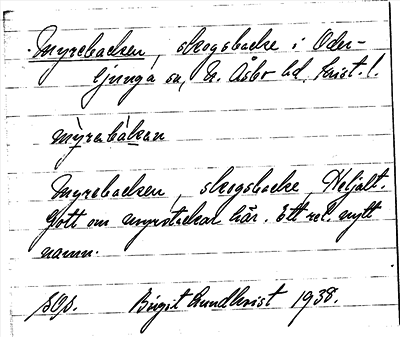 Myrebacken, skogsbacke i Oder-
ljunga sn, N. Åsbo hd, Krist. l.
mỳrebàken
Myrebacken, skogsbacke, Heljalt.
Gott om myrstackar här. Ett rel. nytt
namn.
Birgit Lundkvist 1938.